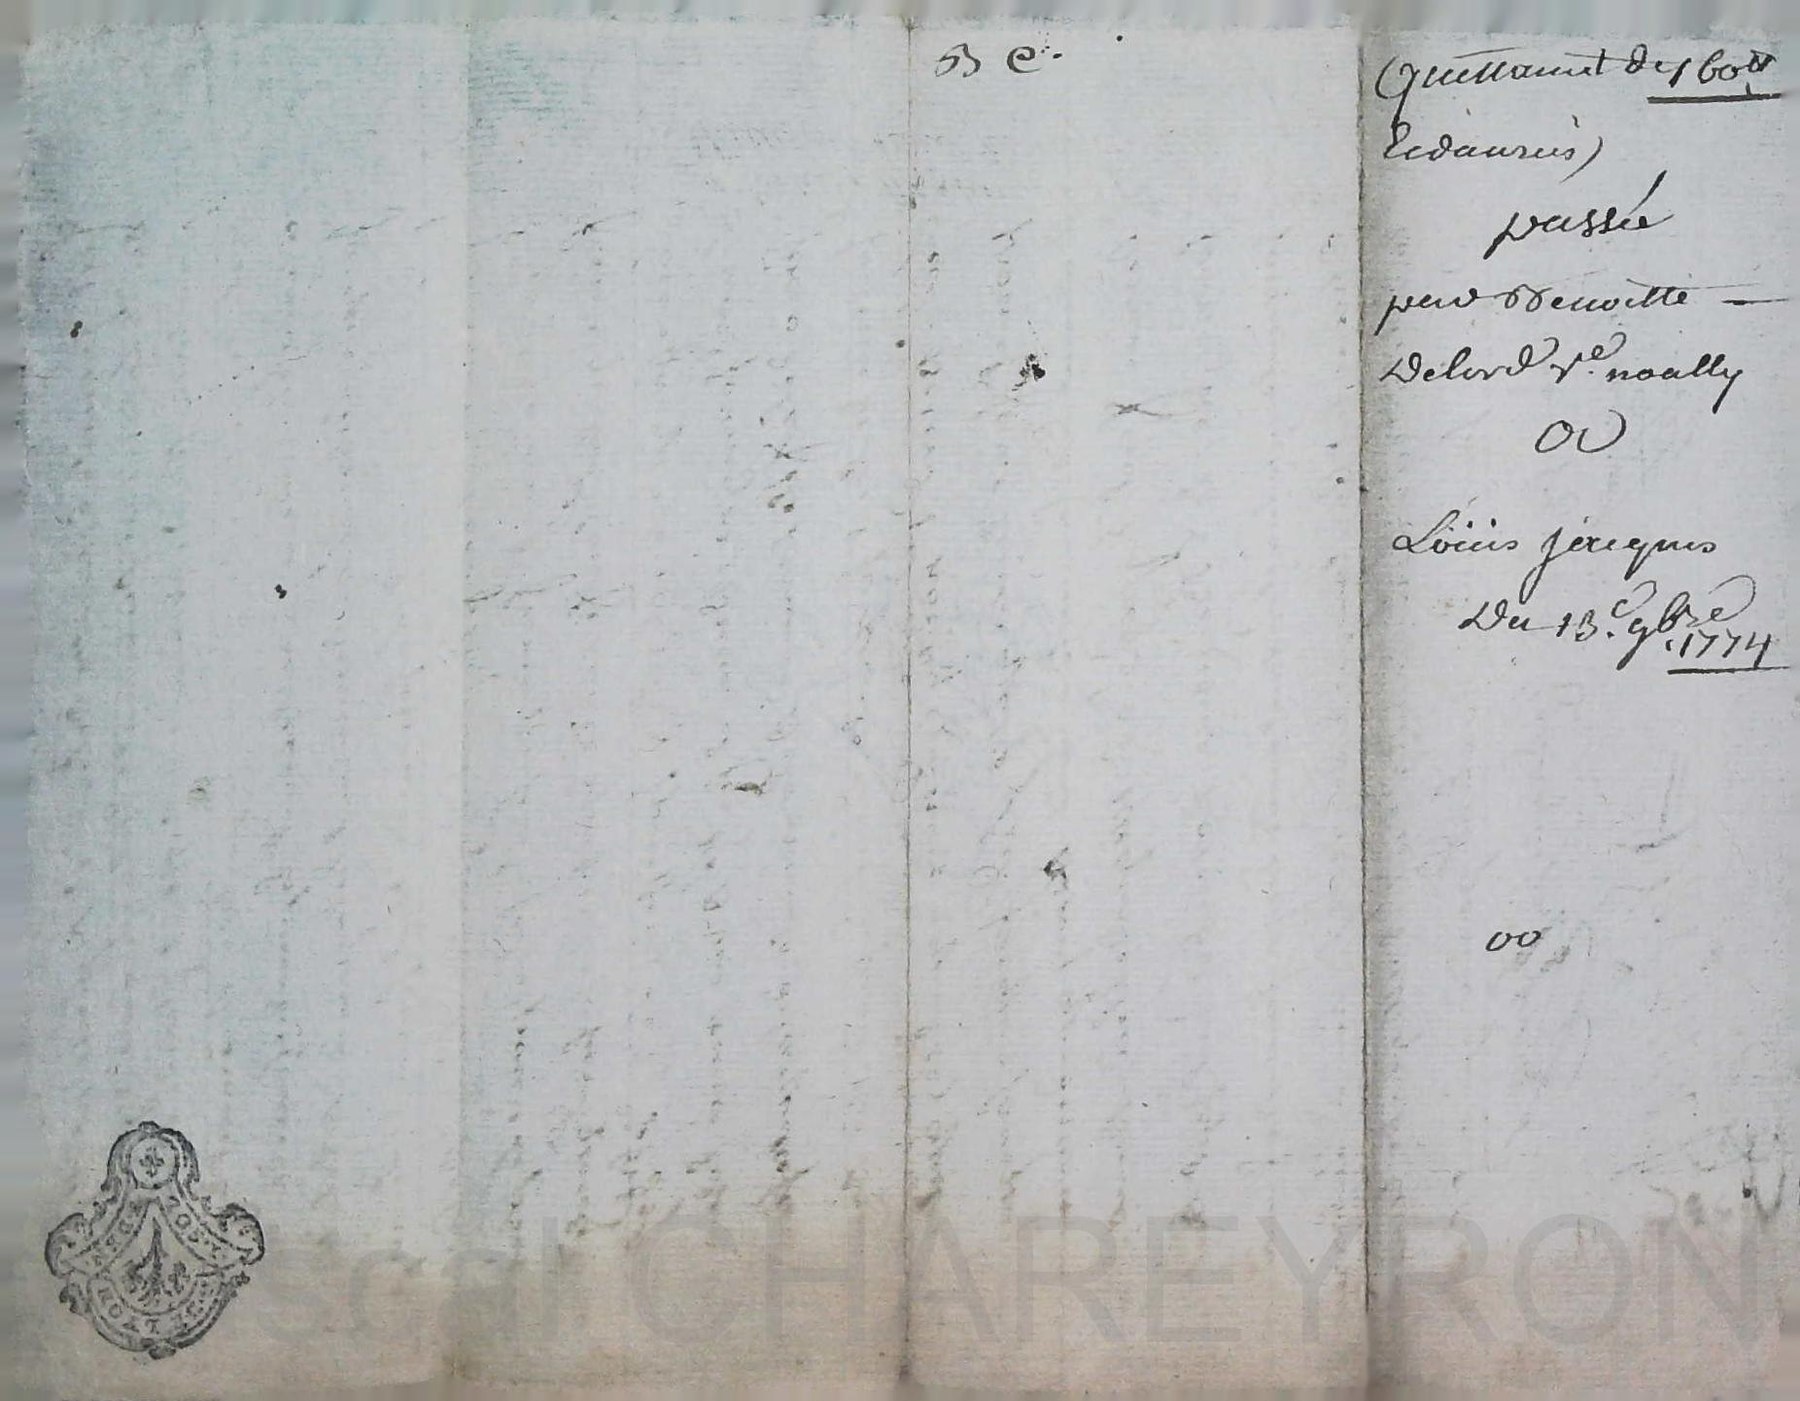 B C.
Quittance de 160tt
passée
par Benoitte —
Delord Ve. noally
a
Loüis jacques
Du 13.e 9bre
1774
oo
scal CHAREYRON